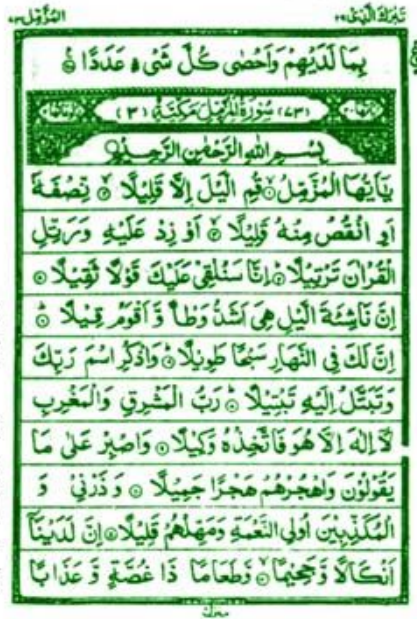 تَبٰرَكَ الَّذِیْ ٢٩
المُزَّمِّل ٧٣
بِمَا لَدَيْهِمْ وَاَحْصٰى كُلَّ شَیْءٍ عَدَدًا
(٧٣) سُوْرَةُ الْمُزَّمِّلِ مَكِّيَّةٌ (٣)
بِسْمِ اللهِ الرَّحْمٰنِ الرَّحِيْمِ
يٰۤاَيُّهَا الْمُزَّمِّلُ قُمِ الَّيْلَ اِلَّا قَلِيْلًا نِّصْفَهٗۤ
اَوِ انْقُصْ مِنْهُ قَلِيْلًا اَوْ زِدْ عَلَيْهِ وَرَتِّلِ
الْقُرْاٰنَ تَرْتِيْلًا اِنَّا سَنُلْقِیْ عَلَيْكَ قَوْلًا ثَقِيْلًا
اِنَّ نَاشِئَةَ الَّيْلِ هِیَ اَشَدُّ وَطْاً وَّ اَقْوَمُ قِيْلًا
اِنَّ لَكَ فِی النَّهَارِ سَبْحًا طَوِيْلًا وَاذْكُرِ اسْمَ رَبِّكَ
وَتَبَتَّلْ اِلَيْهِ تَبْتِيْلًا رَبُّ الْمَشْرِقِ وَالْمَغْرِبِ
لَاۤ اِلٰهَ اِلَّا هُوَ فَاتَّخِذْهُ وَكِيْلًا وَاصْبِرْ عَلٰى مَا
يَقُوْلُوْنَ وَاهْجُرْهُمْ هَجْرًا جَمِيْلًا وَ ذَرْنِیْ وَ
الْمُكَذِّبِيْنَ اُولِی النَّعْمَةِ وَمَهِّلْهُمْ قَلِيْلًا اِنَّ لَدَيْنَاۤ
اَنْكَالًا وَّ جَحِيْمًا وَّطَعَامًا ذَا غُصَّةٍ وَّ عَذَابًا